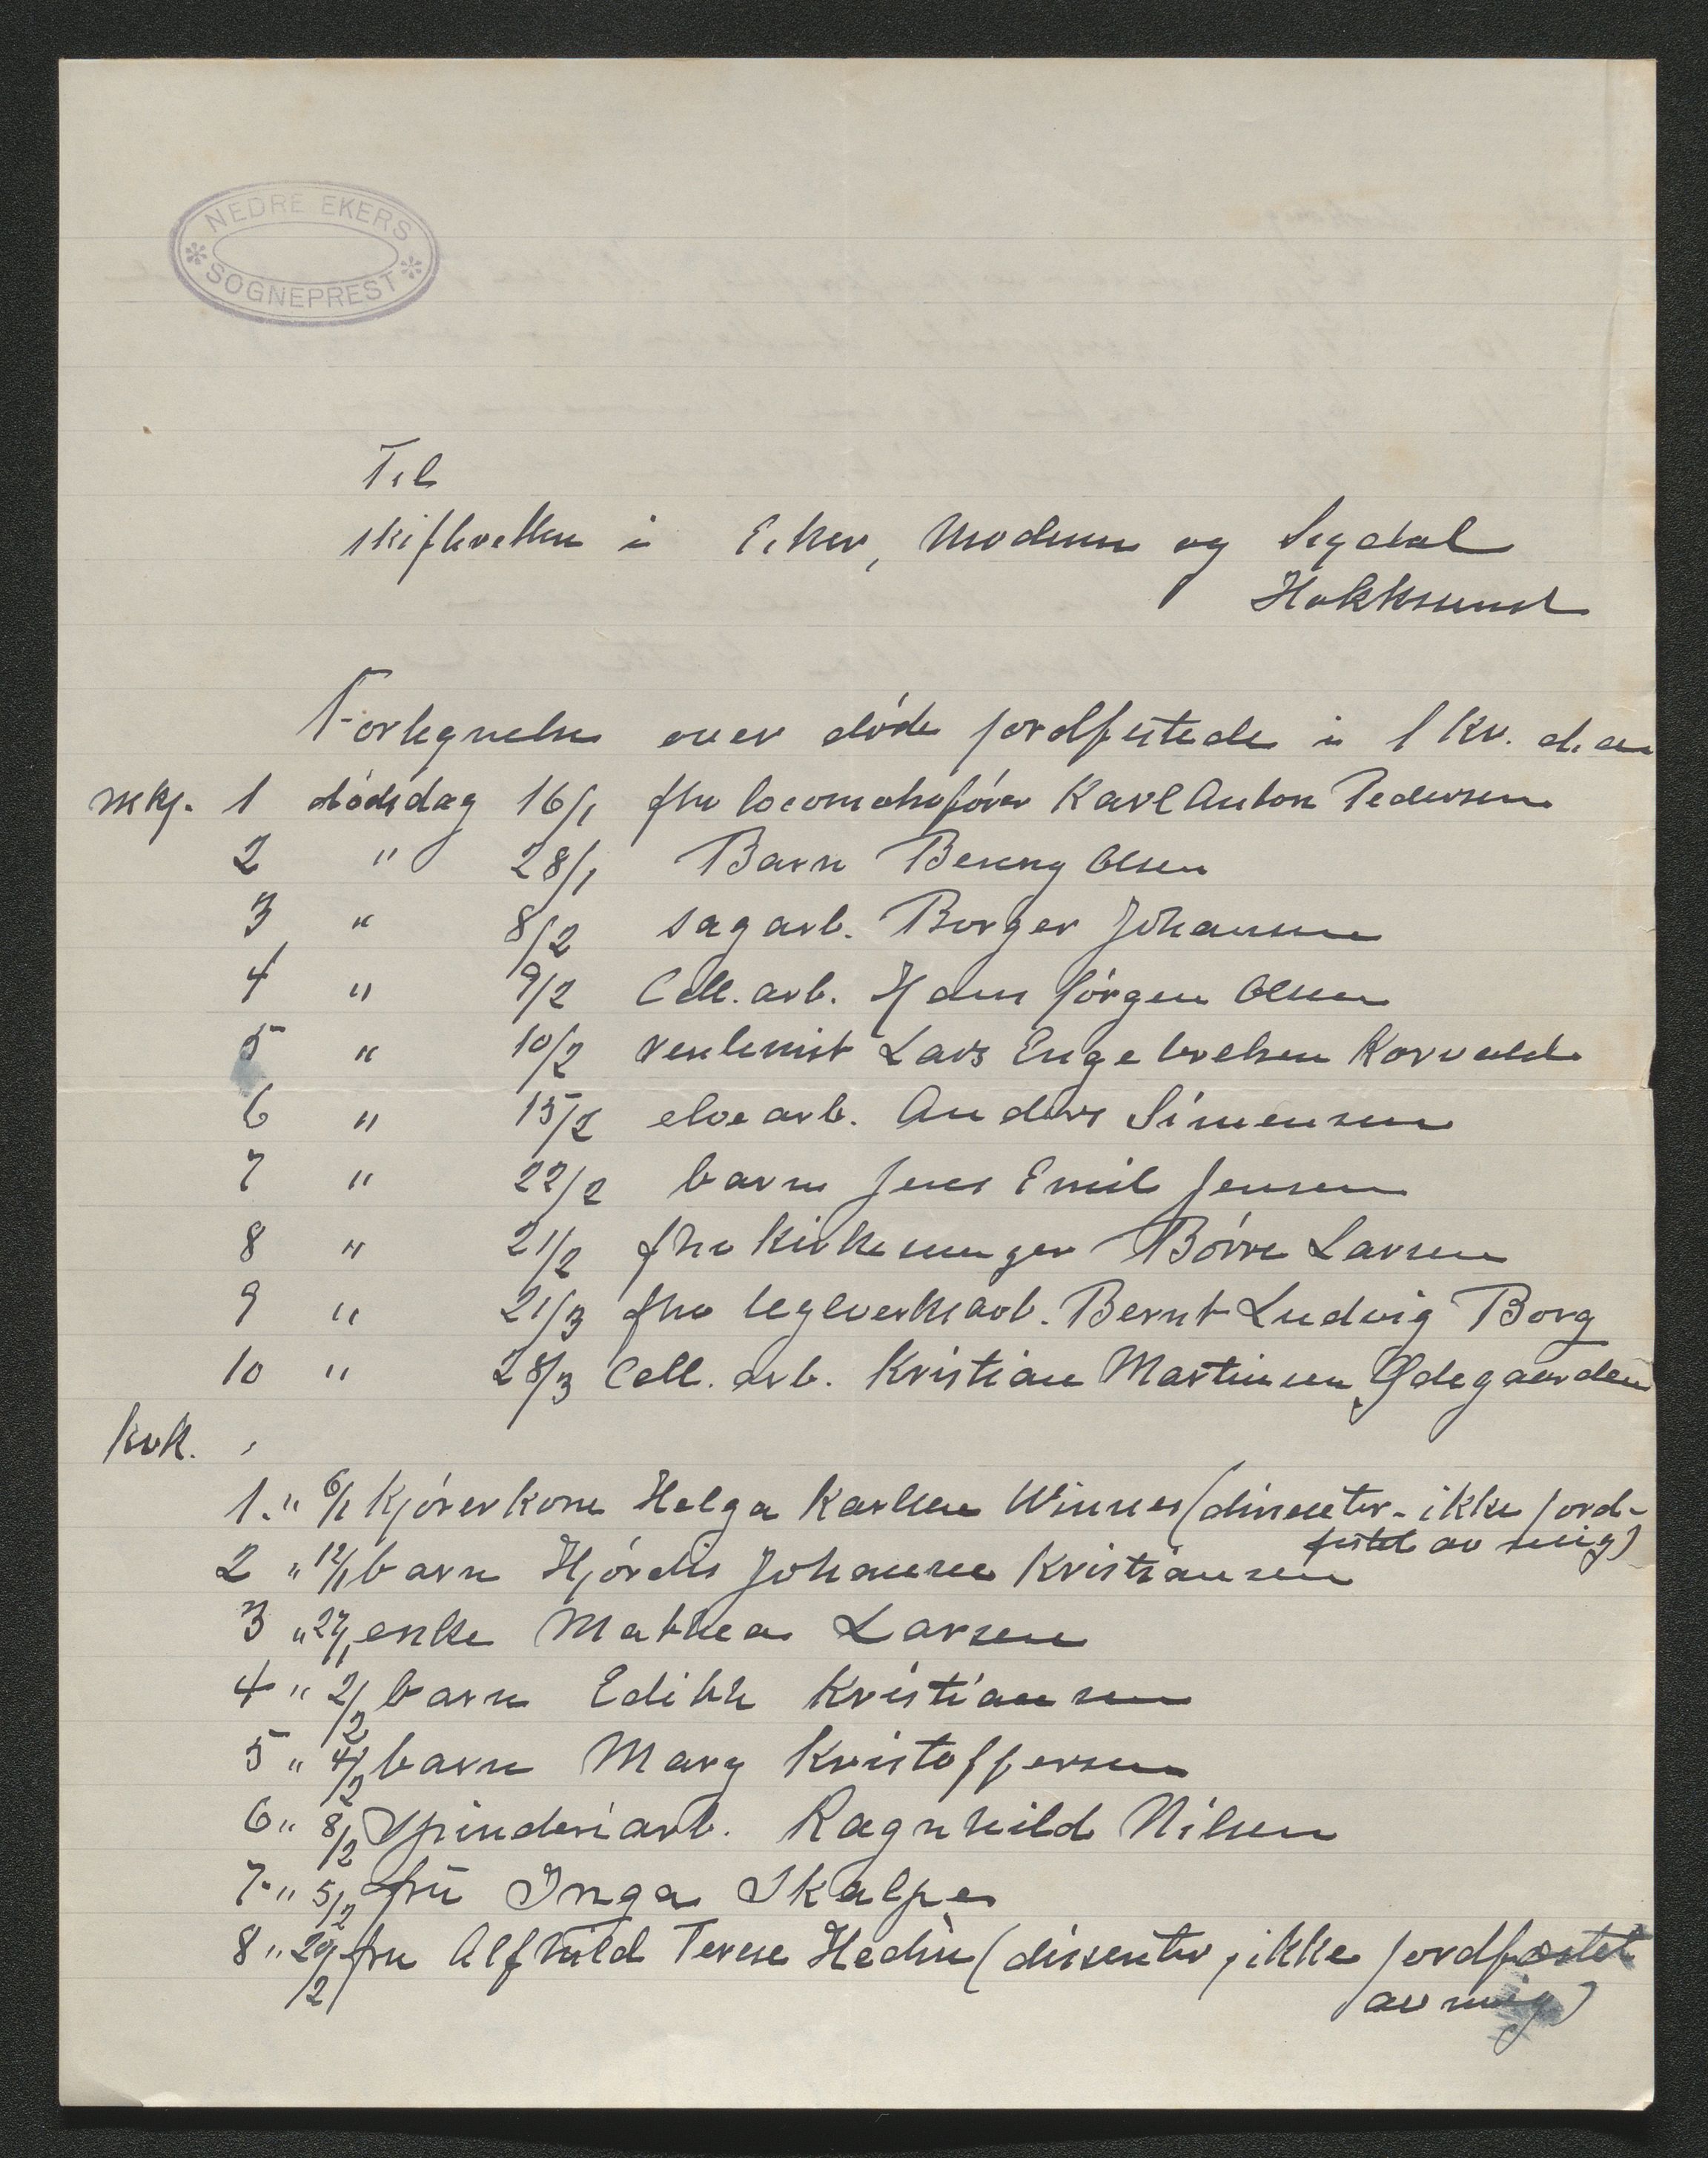 NEDRE EKERS
SOGNEPREST
Til
skifteretten i Eker, Modum og Sigdal
Hokksund
Fortegnelse over døde jordfestede i 1 kv. d. aar
mkj. 1 dødsdag 16/1 fhv locomotivfører Karl Anton Pedersen
2 " 28/1 Barn Benny Olsen
3 " 8/2 sagarb. Borger Johansen
4 " 9/2 Cell. arb. Hans Jörgen Olsen
5 " 10/2 rentenist Lars Engebretsen Korvald
6 " 15/2 elvearb. Anders Simensen
7 " 22/2 barn Jens Emil Jensen
8 " 21/2 fhv kirkesanger Børre Larsen
9 " 21/3 fhv teglverksarb. Bernt Ludvig Borg
10 " 28/3 Cell. arb. Kristian Martinsen Ødegaarden
kvk.
1. " 6/1 Kjørerkone Helga Karlsen Winnes (dissenter - ikke jord-
festet av mig)
2 " 12/1 barn Hjørdis Johanne Kristiansen
3 " 27/1 enke Mathea Larsen
4 " 2/2 barn Edith Kristiansen
5 " 4/2 barn Mary Kristoffersen
6 " 8/2 Spinderiarb. Ragnhild Nilsen
7 " 5/2 frū Inga Skalpe
8 " 20/2 fru Alfhild Terese Hedin (dissenter, ikke jordfæstet
av mig)